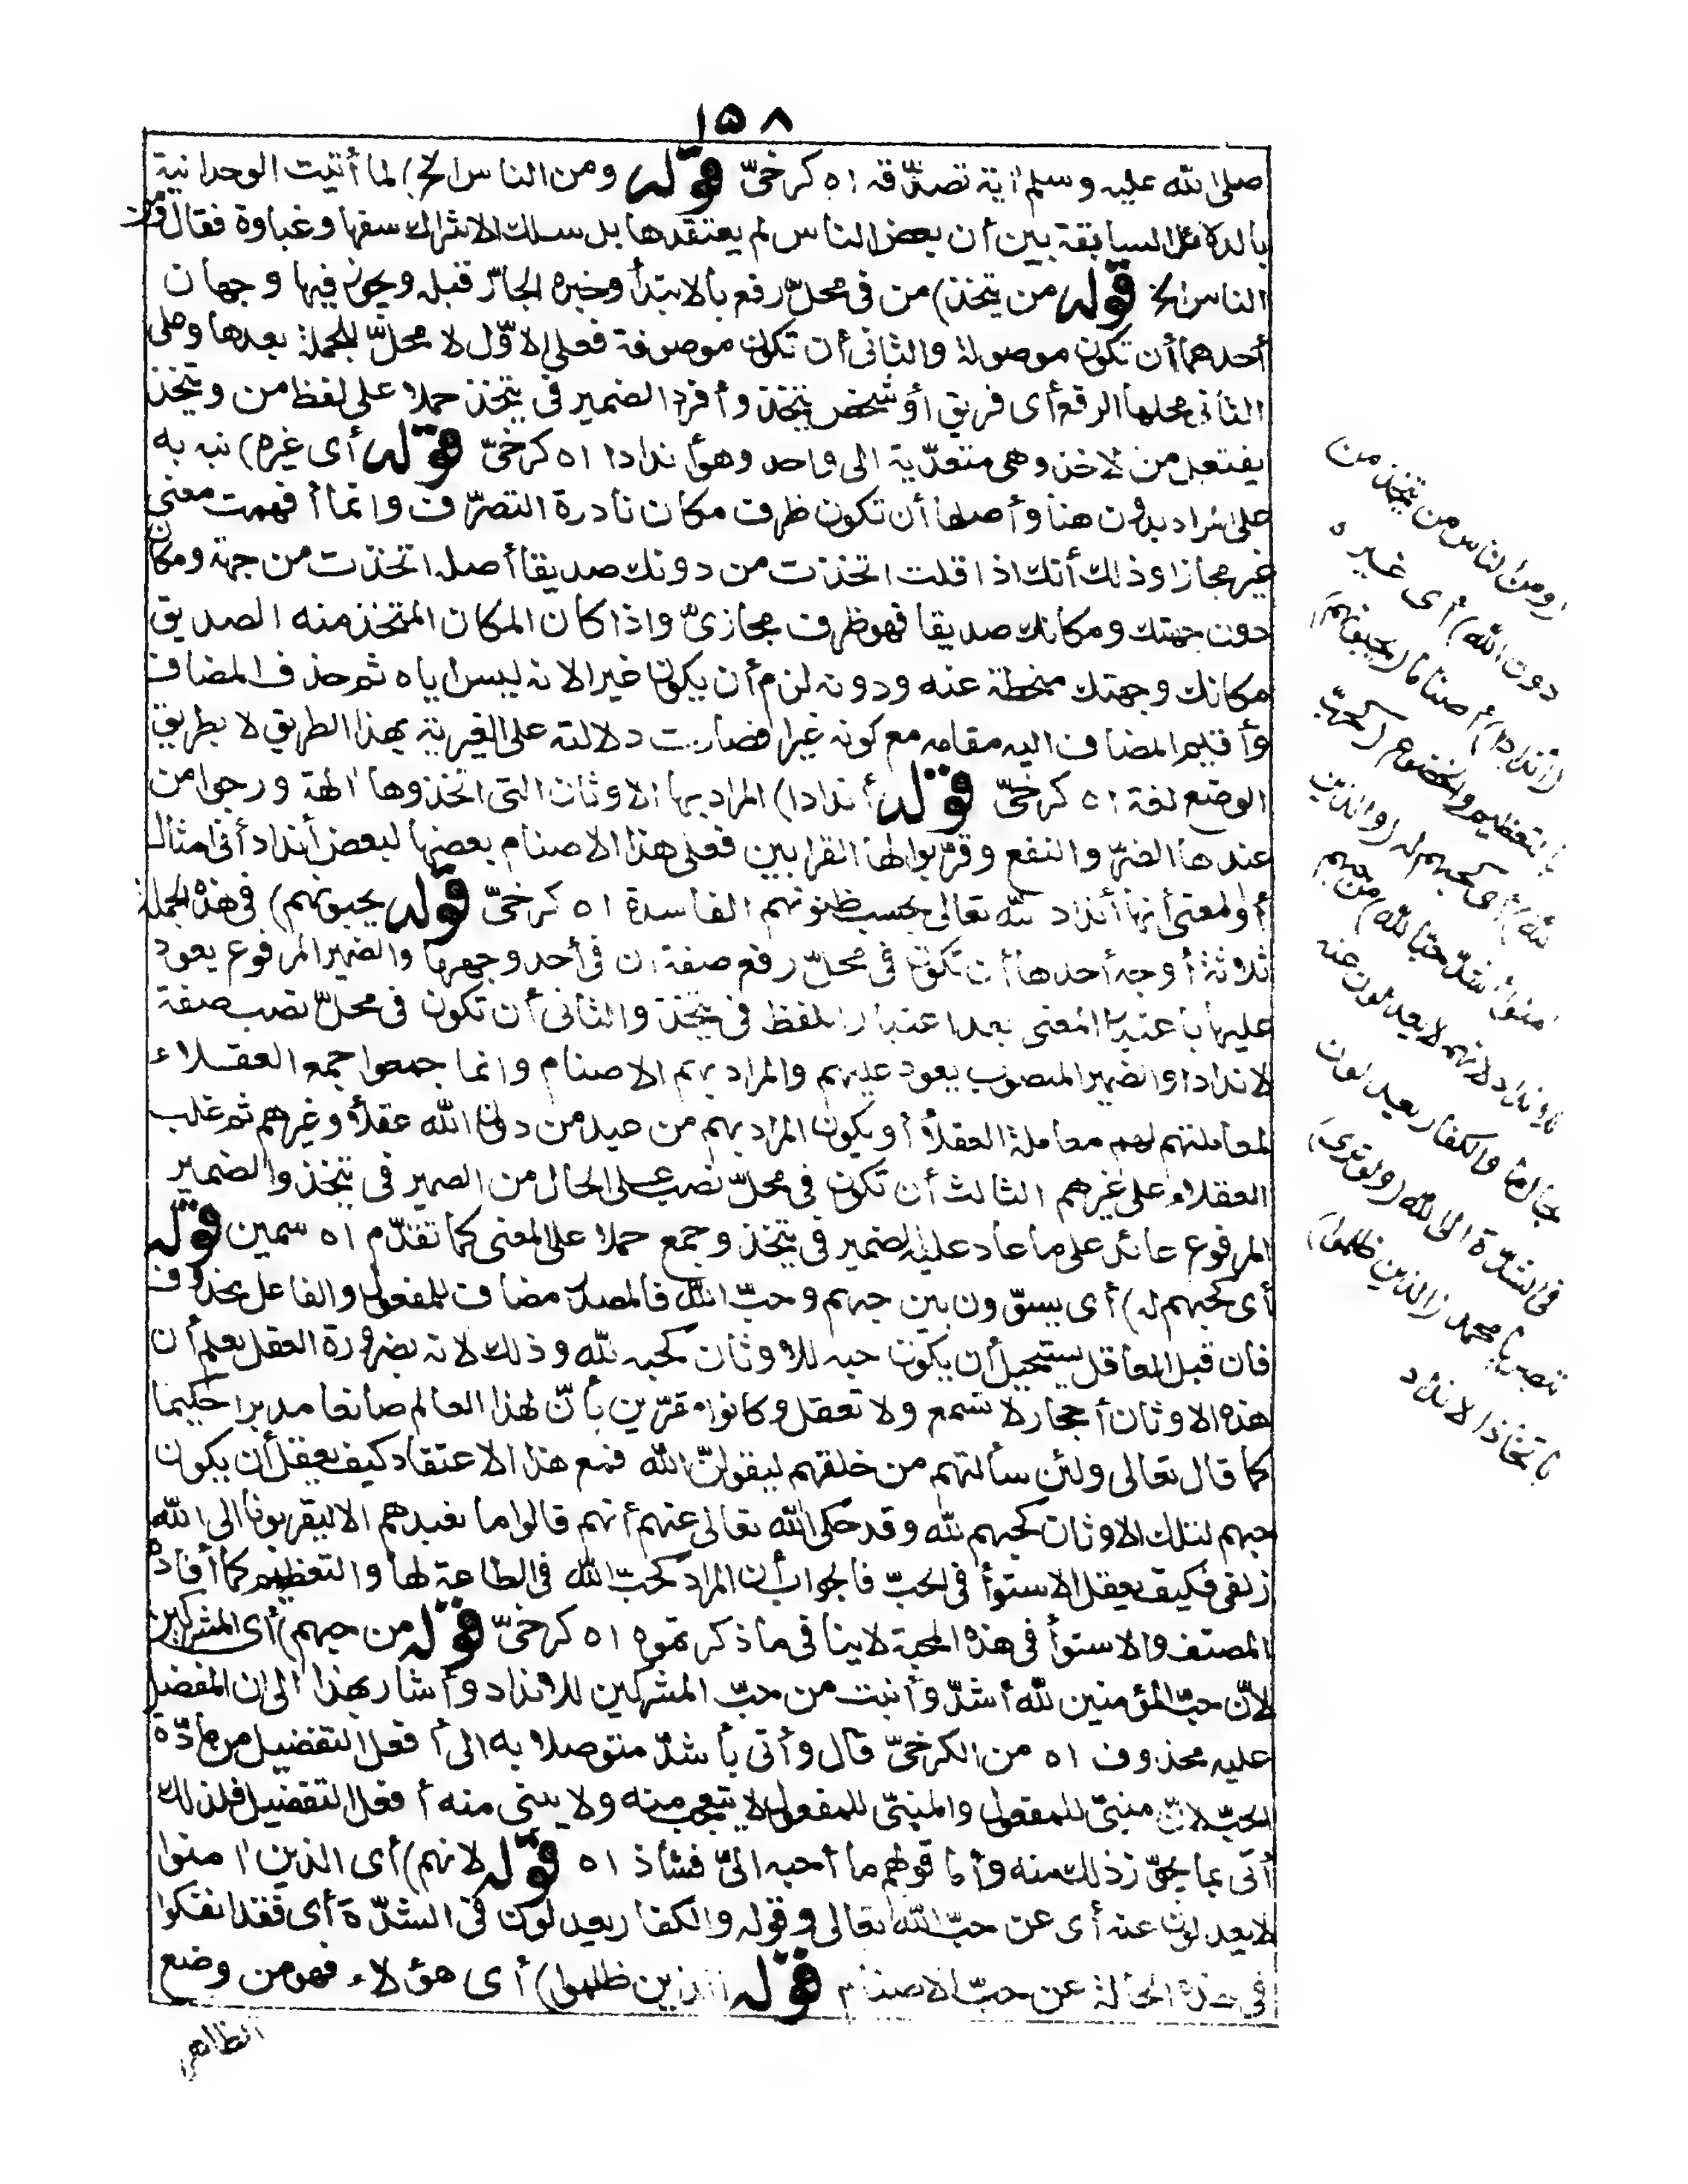 ١٥٨
صلى الله عليه وسلم آية تصدّقه اه كرخىّ قوله ومن الناس الخ) لما أثبت الوحدانية
بالدلائل السابقة بين أن بعض الناس لم يعتقدها بل سلك الاشراك سفها وغباوة فقال ومن
الناس الخ قوله من يتخذ) من فى محلّ رفع بالابتدأ وخبره الجارّ قبله ويجوز فيها وجهان
أحدهما أن تكون موصولة والثانى أن تكون موصوفة فعلى الاوّل لا محلّ للجملة بعدها وعلى
الثانى محلها الرفع أى فريق أو شخص يتخذ وأفرد الضمير فى يتخذ حملا على لفظ من ويتخذ
يفتعل من الاخذ وهى متعدّية الى واحد وهو أندادا اه كرخىّ قوله أى غيره) نبه به
على المراد بدون هنا وأصلها أن تكون ظرف مكان نادرة التصرّف وانما أفهمت معنى
غير مجازا وذلك أنك اذا قلت اتخذت من دونك صديقا أصله اتخذت من جهة ومكان
دون جهتك ومكانك صديقا فهو ظرف مجازىّ واذا كان المكان المتخذ منه الصديق
مكانك وجهتك منحطة عنه ودونه لزم أن يكون غيرا لانه ليس اياه ثم حذف المضاف
وأقيم المضاف اليه مقامه مع كونه غيرا فصارت دلالته على الغيرية بهذا الطريق لا بطريق
الوضع لغة اه كرخىّ قوله أندادا) المراد بها الاوثان التى اتخذوها آلهة ورجوا من
عندها الضرّ والنفع وقرّبوا لها القرابين فعلى هذا الاصنام بعضها لبعض أنداد أى أمثال
أو المعنى أنها أنداد لله تعالى بحسب ظنونهم الفاسدة اه كرخىّ قوله يحبونهم) فى هذه الجملة
ثلاثة أوجه أحدها أن تكون فى محلّ رفع صفة لمن فى أحد وجهيها والضمير المرفوع يعود
عليها باعتبار المعنى بعد اعتبار اللفظ فى يتخذ والثانى أن تكون فى محلّ نصب صفة
لاندادا والضمير المنصوب يعود عليهم والمراد بهم الاصنام وانما جمعوا جمع العقلاء
لمعاملتهم لهم معاملة العقلأ أو يكون المراد بهم من عبد من دون الله عقلأ وغيرهم ثم غلب
العقلاء على غيرهم الثالث أن تكون فى محلّ نصب على الحال من الضمير فى يتخذ والضمير
المرفوع عائد على ما عاد عليه الضمير فى يتخذ وجمع حملا على المعنى كما تقدّم اه سمين قوله
أى كحبهم له) أى يسوّون بين حبهم وحبّ الله فالمصدر مضاف للمفعول والفاعل محذوف
فان قبل العاقل يستحيل أن يكون حبه للاوثان كحبه لله وذلك لانه بضرورة العقل يعلم أن
هذه الاوثان أحجار لا تسمع ولا تعقل وكانوا مقرّين بأنّ لهذا العالم صانعا مدبرا حكيما
كما قال تعالى ولئن سألتهم من خلقهم ليقولنّ الله فمع هذا الاعتقاد كيف يعقل أن يكون
حبهم لتلك الاوثان كحبهم لله وقد حكى الله تعالى عنهم أنهم قالوا ما نعبدهم الا ليقربونا الى الله
زلفى فكيف يعقل الاستوأ فى الحبّ فالجواب أن المراد كحبّ الله فى الطاعة لها والتعظيم كما أفاده
المصنف والاستوأ فى هذه المحبة لا ينافى ما ذكرتموه اه كرخىّ قوله من حبهم) أى المشركين
لانّ حبّ المؤمنين لله أشدّ وأثبت من حبّ المشركين للانداد وأشار بهذا الى أن المفضل
عليه محذوف اه من الكرخىّ قال وأتى بأشدّ متوصلا به الى أفعل التفضيل من مادّة
الحبّ لانّه مبنىّ للمفعول والمبنىّ للمفعول لا يتعجب منه ولا يبنى منه أفعل التفضيل فلذلك
أتى بما يجوّز ذلك منه وأما قولهم ما أحبه الىّ فشاذ اه قوله لانهم) أى الذين امنوا
لا يعدلون عنه أى عن حبّ الله تعالى وقوله والكفار يعدلون فى الشدّة أى فقد انفكوا
فى هذه الحالة عن حبّ الاصنام قوله الذين ظلموا) أى هؤلاء فهو من وضع
الظاهر
(ومن الناس من يتخذ من
دون الله) أى غيره
(أندادا) أصناما (يحبونهم)
بالتعظيم والخضوع (كحبّ
الله) أى كحبهم له (والذين
امنوا أشدّ حبّا لله) من حبهم
للانداد لانهم لا يعدلون عنه
بحال ما والكفار يعدلون
فى الشدّة الى الله (ولو ترى)
تبصر يا محمد (الذين ظلموا)
باتخاذ الانداد